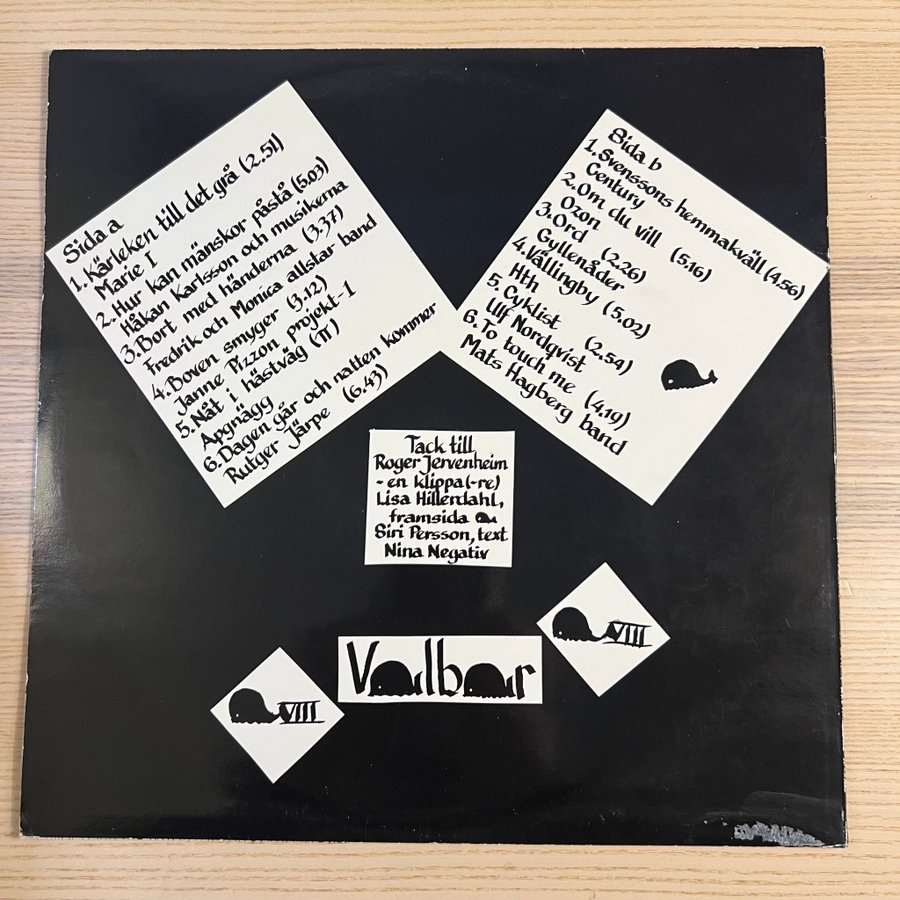 Sida a
1. Kärleken till det grå (2.51)
Marie I
2. Hur kan mänskor påstå (5.03)
Håkan Karlsson och musikerna
3. Bort med händerna (3.37)
Fredrik och Monica allstar band
4. Boven smyger (3.12)
Janne Pizzon projekt-1
5. Nåt i hästväg (π)
Apgnägg
6. Dagen går och natten kommer
Rutger Järpe (6.43)
Sida b
1. Svenssons hemmakväll (4.56)
Century
2. Om du vill (5.16)
Ozon
3. Ord (2.26)
Gyllenåder
4. Vällingby (5.02)
Hth
5. Cyklist (2.54)
Ulf Nordqvist
6. To touch me (4.19)
Mats Hagberg band
Tack till
Roger Jervenheim
- en klippa(-re)
Lisa Hillerdahl,
framsida
Siri Persson, text
Nina Negativ
VIII
Valbar
VIII